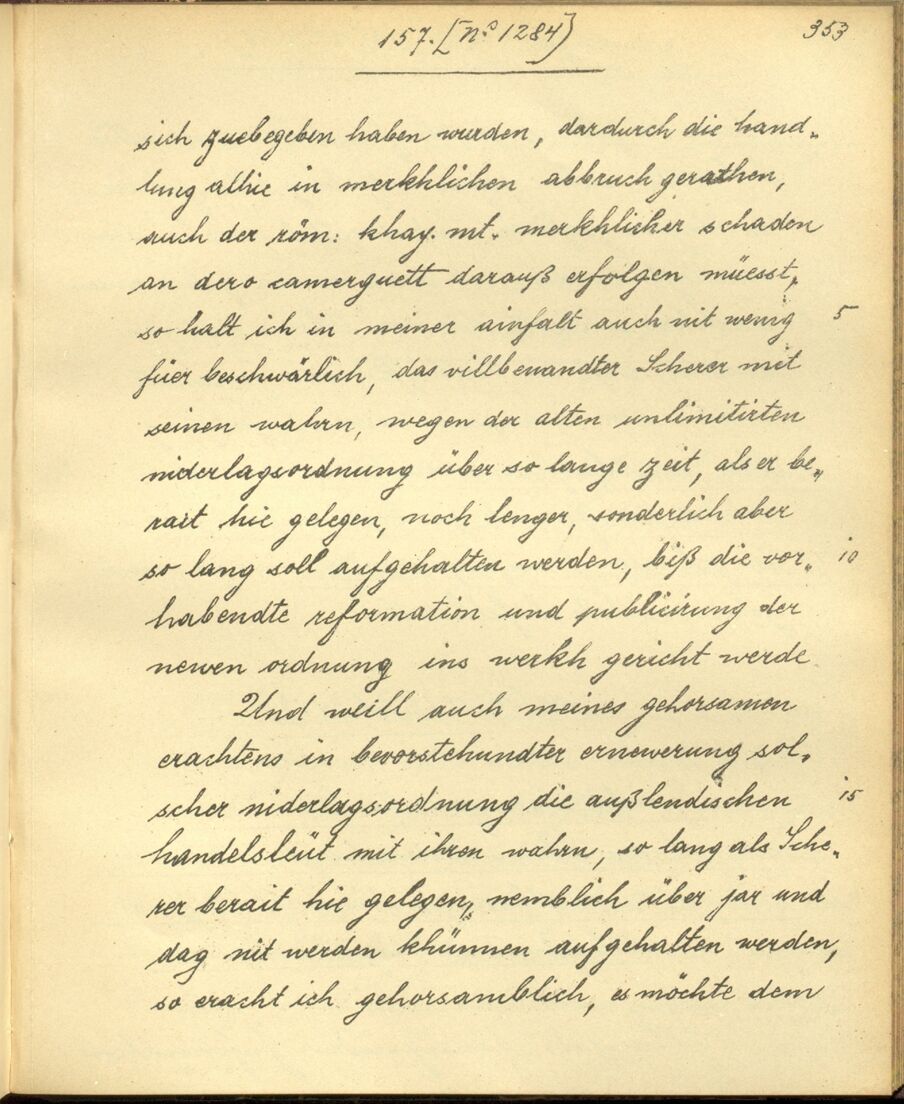 157. [No 1284]
353
sich zuebegeben haben wurden, dardurch die hand„
lung alhie in merkhlichen abbruch gerathen,
auch der röm: khay. mt. merkhlicher schaden
an dero camerguett darauß erfolgen müesst,
so halt ich in meiner ainfalt auch nit wenig 5
füer beschwärlich, das villbenandter Scherer mit
seinen wahrn, wegen der alten unlimitirten
niderlagsordnung über so lange zeit, als er be„
rait hie gelegen, noch lenger, sonderlich aber
so lang soll aufgehalten werden, biß die vor„ 10
habendte reformation und publicirung der
newen ordnung ins werkh gericht werde.
Und weill auch meines gehorsamen
erachtens in bevorstehundter ernewerung sol„
scher niderlagsordnung die außlendischen 15
handelsleüt mit ihren wahrn, so lang als Sche„
rer berait hie gelegen, nemblich über jar und
dag nit werden khünnen aufgehalten werden,
so eracht ich gehorsamblich, es möchte dem